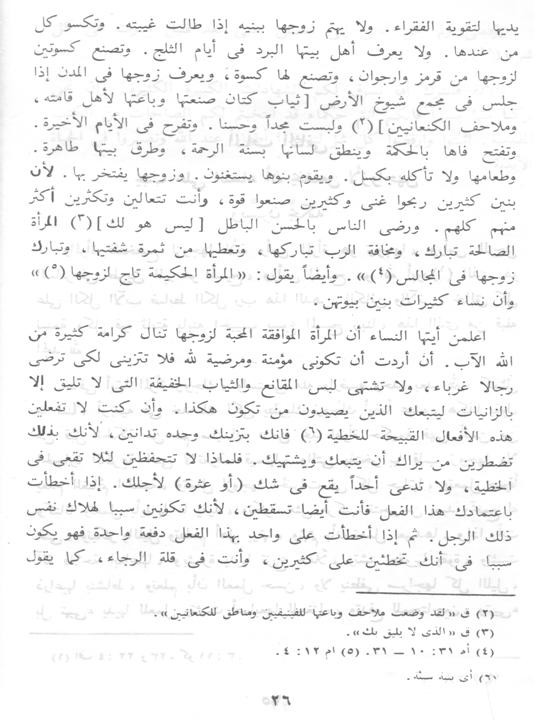 يديها لتقوية الفقراء . ولا يهتم زوجها ببنيه إذا طالت غيبته . وتكسو كل
من عندها . ولا يعرف أهل بيتها البرد فى أيام الثلج . وتصنع كسوتين
لزوجها من قرمز وارجوان ، وتصنع لها كسوة ، ويعرف زوجها فى المدن إذا
جلس فى مجمع شيوخ الأرض [ ثياب كتان صنعتها وباعتها لأهل قامته ،
وملاحف الكنعانيين ] (٢) ولبست مجداً وحسنا . وتفرح فى الأيام الأخيرة .
وتفتح فاها بالحكمة وينطق لسانها بسنة الرحمة ، وطرق بيتها طاهرة .
وطعامها ولا تأكله بكسل . ويقوم بنوها يستغنون . وزوجها يفتخر بها . لأن
بنين كثيرين ربحوا غنى وكثيرين صنعوا قوة ، وأنت تتعالين وتكثرين أكثر
منهم كلهم . ورضى الناس بالحسن الباطل [ ليس هو لك ] (٣) المرأة
الصالحة تبارك ، ومخافة الرب تباركها ، وتعطيها من ثمرة شفتيها ، وتبارك
زوجها فى المجالس (٤) » . وأيضاً يقول : « المرأة الحكيمة تاج لزوجها (٥) »
وأن نساء كثيرات بنين بيوتهن .
اعلمن أيتها النساء أن المرأة الموافقة المحبة لزوجها تنال كرامة كثيرة من
الله الآب . أن أردت أن تكونى مؤمنة ومرضية لله فلا تتزينى لكى ترضى
رجالا غرباء ، ولا تشتهى لبس المقانع والثياب الخفيفة التى لا تليق إلا
بالزانيات ليتبعك الذين يصيدون من تكون هكذا . وأن كنت لا تفعلين
هذه الأفعال القبيحة للخطية (٦) فانك بتزينك وحده تدانين ، لأنك بذلك
تضطرين من يراك أن يتبعك ويشتهيك . فلماذا لا تتحفظين لئلا تقعى فى
الخطية ، ولا تدعى أحداً يقع فى شك (أو عثرة) لأجلك . إذا أخطأت
باعتمادك هذا الفعل فأنت أيضا تسقطين ، لأنك تكونين سببا لهلاك نفس
ذلك الرجل . ثم إذا أخطأت على واحد بهذا الفعل دفعة واحدة فهو يكون
سببا فى أنك تخطئين على كثيرين ، وأنت فى قلة الرجاء ، كما يقول
(٢) ق « لقد وضعت ملاحف وباعتها للفينيقيين ومناطق للكنعانيين » .
(٣) ق « الذى لا يليق بك » .
(٤) أم ٣١ : ١٠ — ٣١ . (٥) ام ١٢ : ٤ .
(٦) أى بنية سيئة .
٢٦